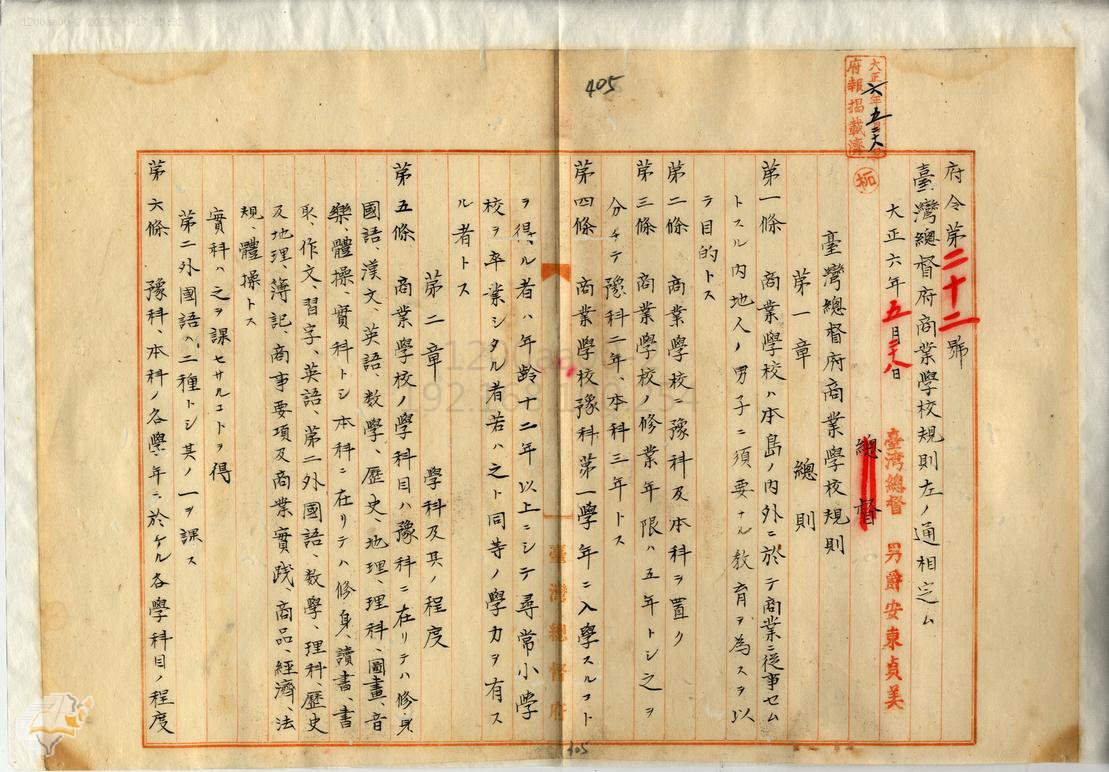 1200aa00-2 2023-05-17 15:32
405
大正六年五月二十八日
府報掲載濟
府令第二十二號
臺灣總督府商業學校規則左ノ通相定ム
大正六年五月二十八日
臺灣總督 男爵安東貞美
總督
臺灣總督府商業學校規則
第一章 總則
第一條 商業學校ハ本島ノ內外ニ於テ商業ニ從事セム
トスル內地人ノ男子ニ須要ナル教育ヲ為スヲ以
テ目的トス
第二條 商業學校ニ豫科及本科ヲ置ク
第三條 商業學校ノ修業年限ハ五年トシ之ヲ
分チテ豫科二年、本科三年トス
第四條 商業學校豫科第一學年ニ入學スルコト
ヲ得ル者ハ年齡十二年以上ニシテ尋常小學
校ヲ卒業シタル者若ハ之ト同等ノ學力ヲ有ス
ル者トス
第二章 學科及其ノ程度
第五條 商業學校ノ學科目ハ豫科ニ在リテハ修身
國語、漢文、英語、数學、歷史、地理、理科、圖畫、音
樂、體操、實科トシ本科ニ在リテハ修身、讀書、書
取、作文、習字、英語、第二外國語、数學、理科、歷史
及地理、簿記、商事要項及商業實踐、商品、經濟、法
規、體操トス
實科ハ之ヲ課セサルコトヲ得
第二外國語ハ二種トシ其ノ一ヲ課ス
第六條 豫科、本科ノ各學年ニ於ケル各學科目ノ程度
臺灣總督府
405